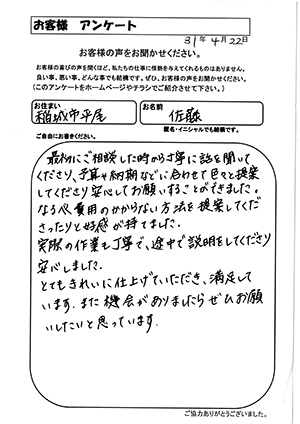 お客様 アンケート
31年 4月22日
お客様の声をお聞かせください。
お客様の喜びの声を聞くほど、私たちの仕事に情熱を与えてくれるものはありません。
良い事、悪い事、どんな事でも結構です。ぜひ、お客様の声をお聞かせください。
(このアンケートをホームページやチラシでご紹介させて下さい。)
お住まい
稲城市平尾
お名前
佐藤
匿名・イニシャルでも結構です。
ご自由にお書きください。
最初にご相談した時から丁寧に話を聞いて
くださり、予算や納期などに合わせて色々と提案
してくださり安心してお願いすることができました。
なるべく費用のかからない方法を提案してくだ
さったりと好感が持てました。
実際の作業も丁寧で、途中で説明をしてくださり
安心しました。
とてもきれいに仕上げていただき、満足して
います。また機会がありましたらぜひお願
いしたいと思っています。
ご協力ありがとうございました。